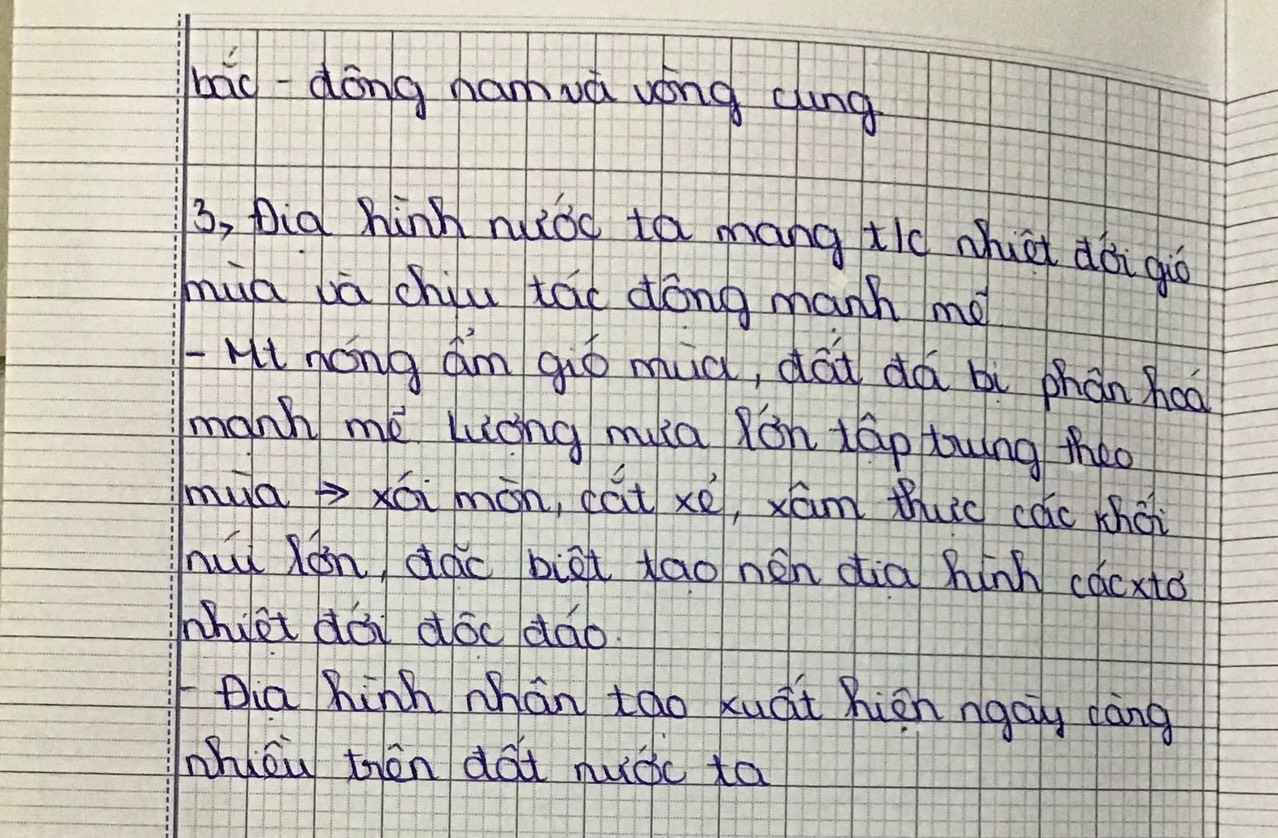 bắc - đông nam và vòng cung
3, Địa hình nước ta mang t/c nhiệt đới gió
mùa và chịu tác động mạnh mẽ
- Mt nóng ẩm gió mùa, đất đá bị phân hoá
mạnh mẽ lượng mưa lớn tập trung theo
mùa → xói mòn, cắt xẻ, xâm thực các khối
núi lớn, đặc biệt tạo nên địa hình cácxtơ
nhiệt đới độc đáo.
- Địa hình nhân tạo xuất hiện ngày càng
nhiều trên đất nước ta